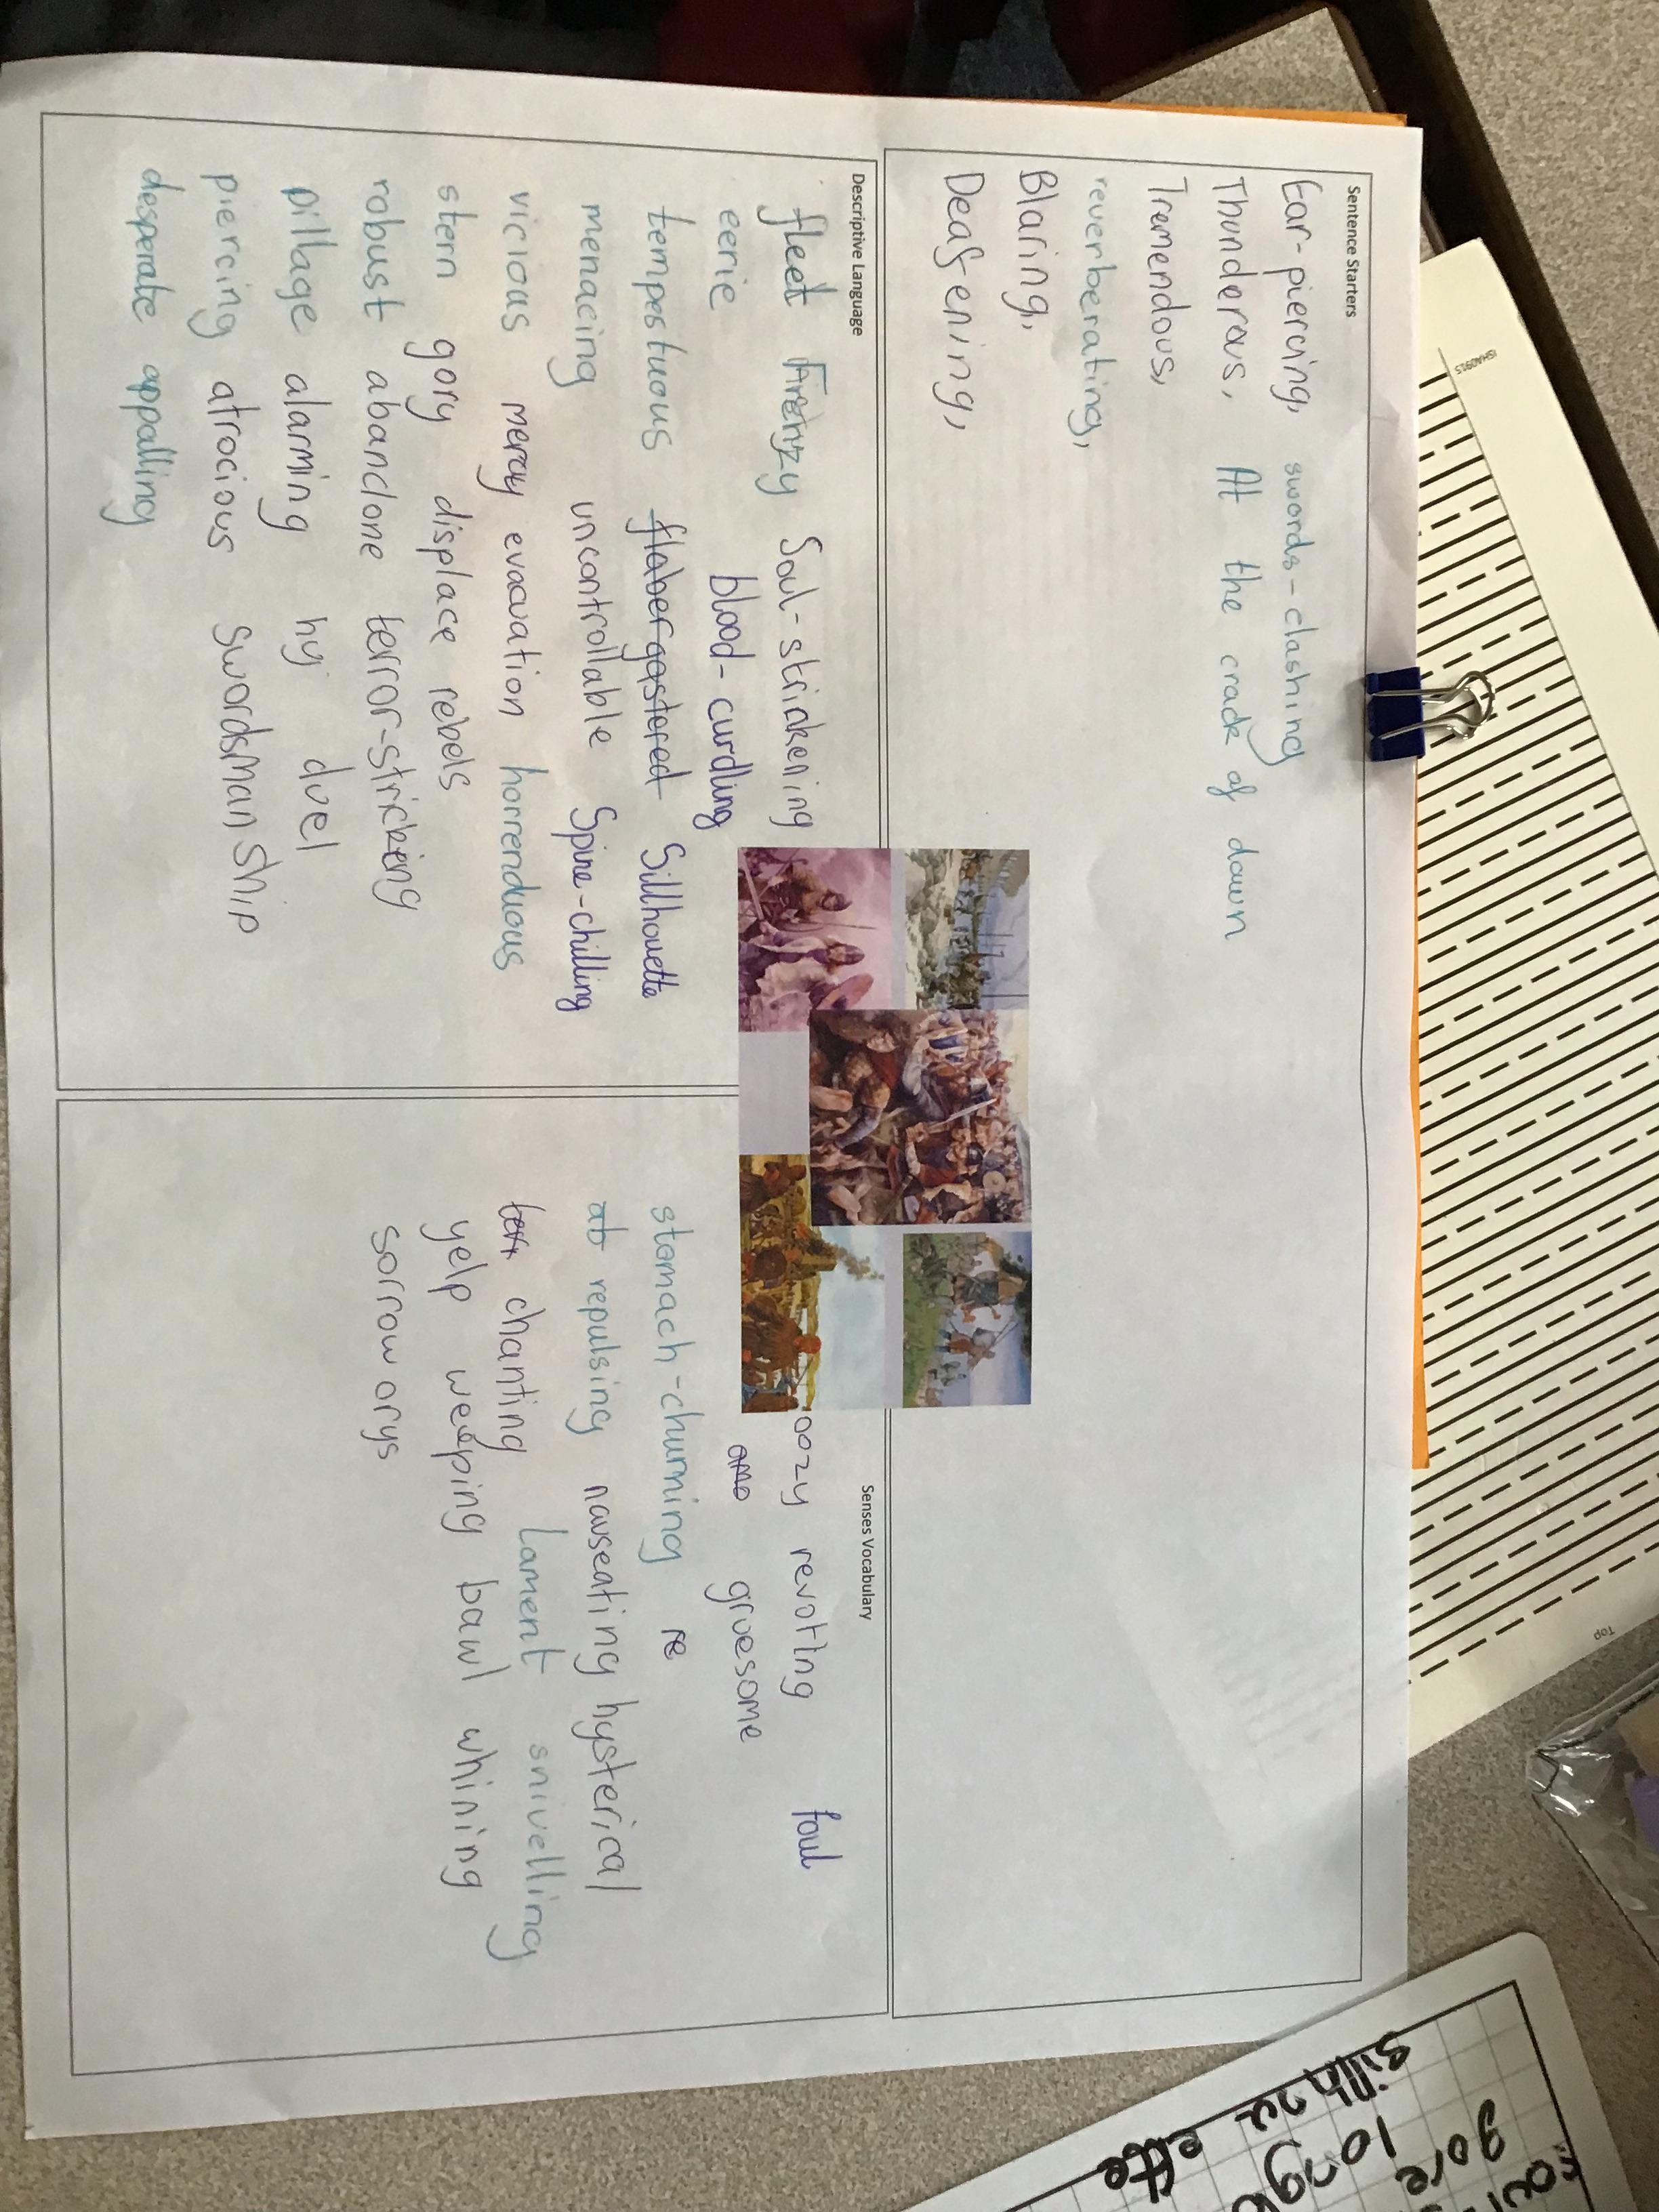 Sentence Starters
Ear-piercing, swords-clashing
Thunderous, At the crack of dawn
Tremendous,
reverberating,
Blaring,
Deafening,
Descriptive Language
fleet Frenzy Soul-strickening
eerie blood-curdling
tempestuous flabergastered Sillhouette
menacing uncontrollable Spine-chilling
vicious mercy evacuation horrenduous
stern gory displace rebels
robust abandone terror-stricking
pillage alarming hy duel
piercing atrocious swordsmanship
desperate appalling
Senses Vocabulary
oozy revolting foul
gruesome
stomach-churning re
ab repulsing nauseating hysterical
chanting Lament snivelling
yelp weeping bawl whining
sorrow arys
ISHA0915
Top
sillhouette
gore long